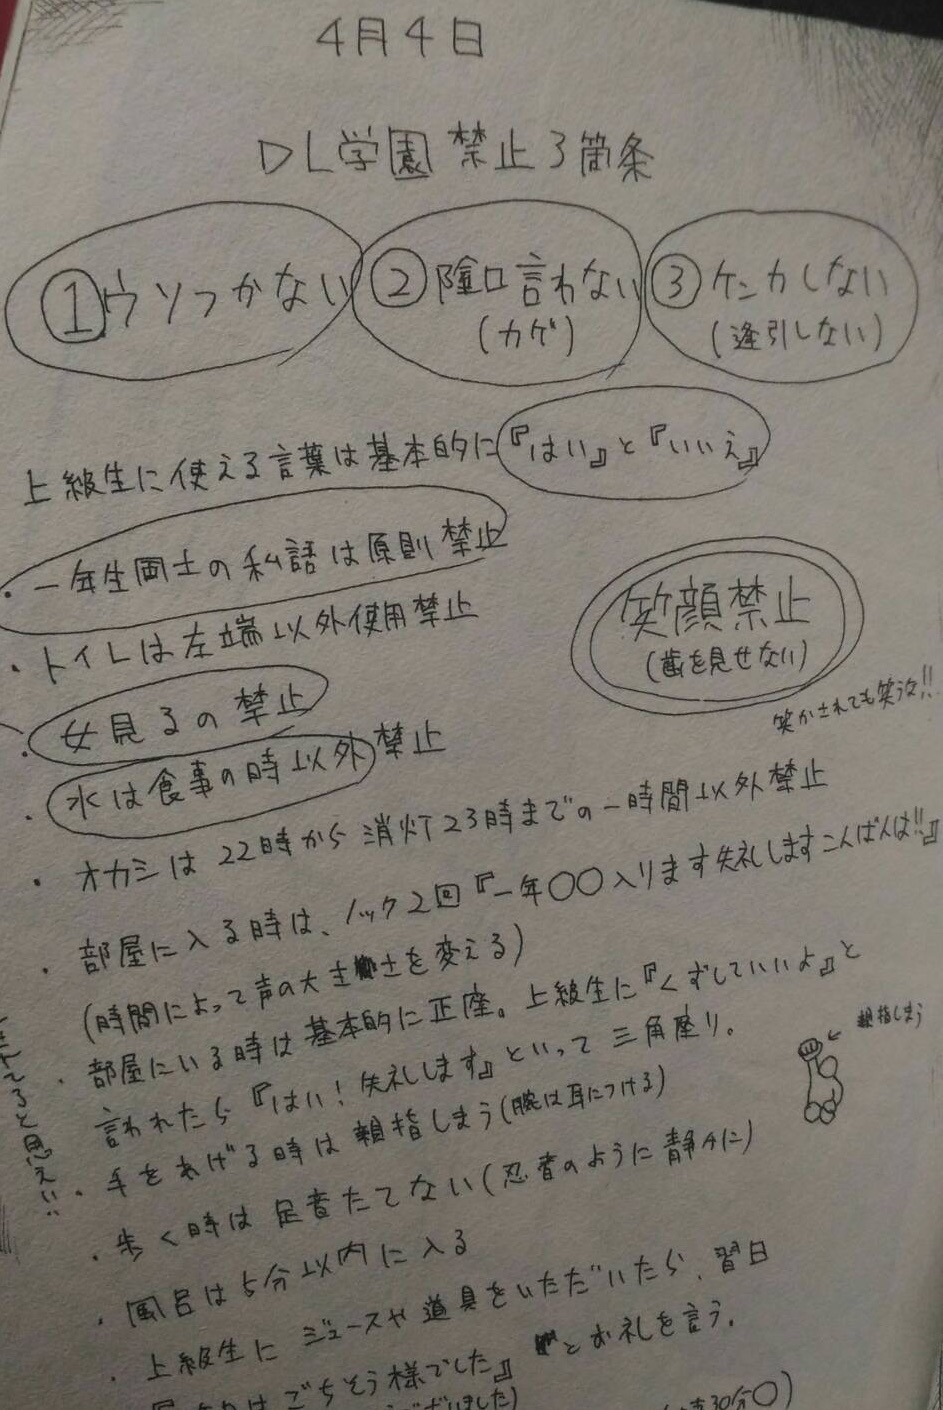 4月4日
DL学園 禁止3箇条
①ウソつかない ②陰口言わない ③ケンカしない
(カゲ) (逢引しない)
上級生に使える言葉は基本的に『はい』と『いいえ』
・一年生同士の私語は原則禁止
・トイレは左端以外使用禁止
笑顔禁止
(歯を見せない)
笑かされても笑うな!!
・女見るの禁止
・水は食事の時以外禁止
・オカシは22時から消灯23時までの一時間以外禁止
・部屋に入る時は、ノック2回『一年〇〇入ります失礼しますこんばんは!!』
(時間によって声の大きさを変える)
・部屋にいる時は基本的に正座。上級生に『くずしていいよ』と
言われたら『はい!失礼します』といって三角座り。
・手をあげる時は親指しまう(腕は耳につける)
親指しまう
・歩く時は足音たてない(忍者のように静かに)
・風呂は5分以内に入る
・上級生にジュースや道具をいただいたら、翌日
ごちそう様でした』とお礼を言う。
と思え!!
30分〇)